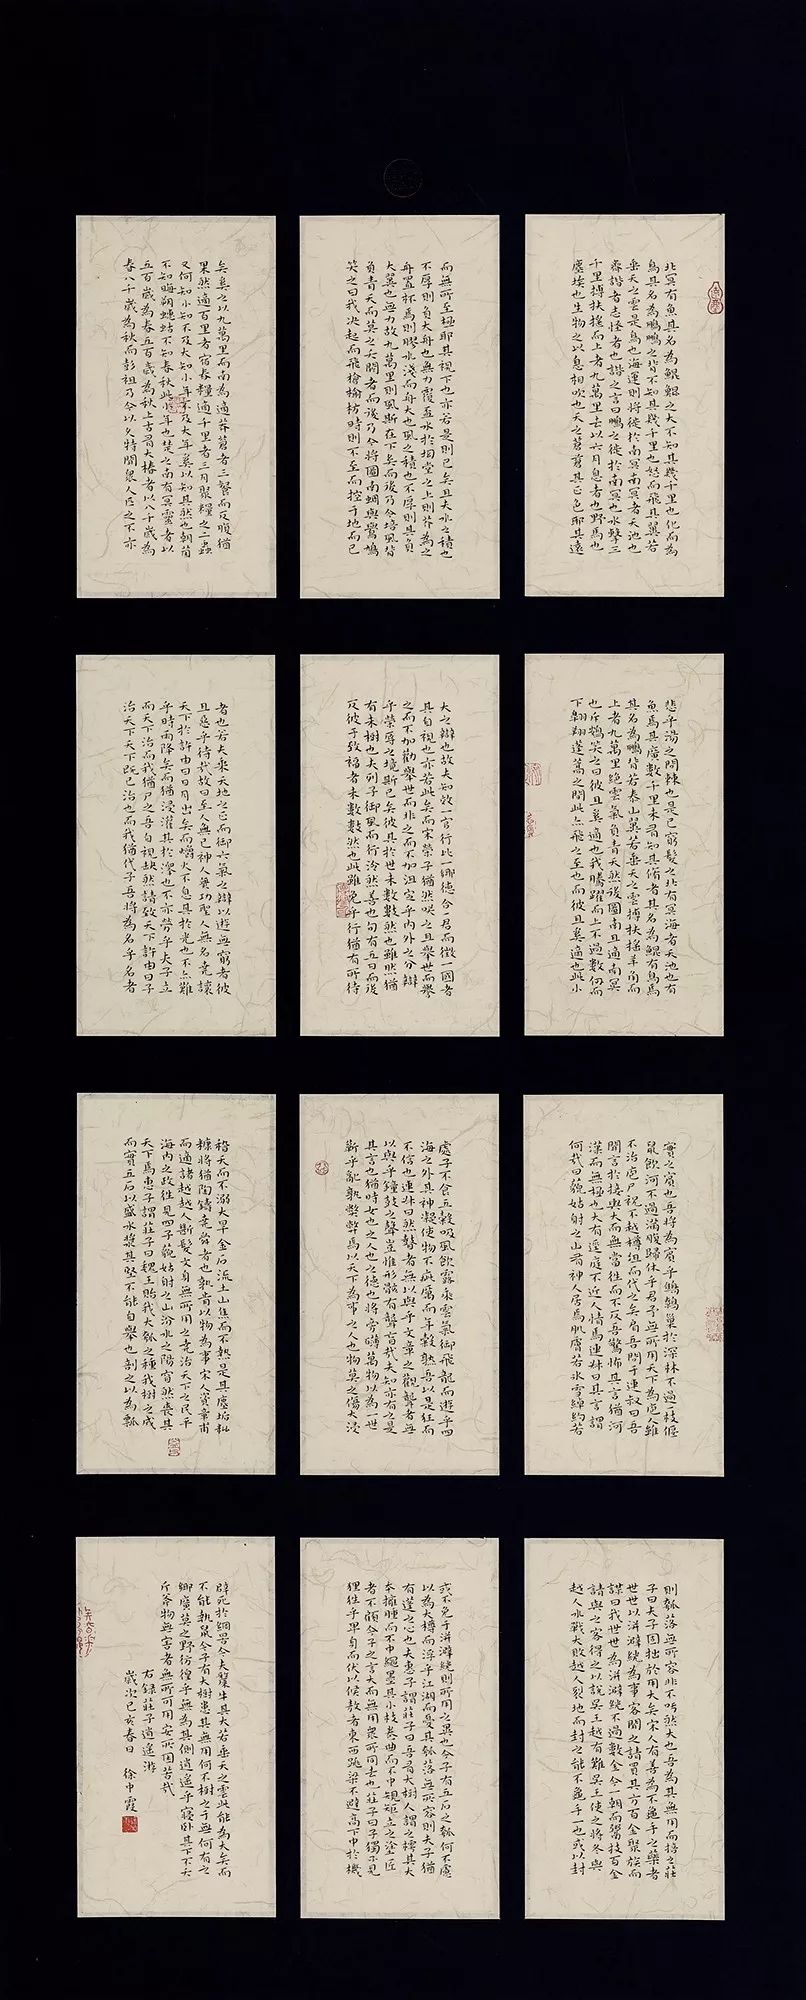 北冥有魚其名為鯤鯤之大不知其幾千里也化而為
鳥其名為鵬鵬之背不知其幾千里也怒而飛其翼若
垂天之雲是鳥也海運則將徙於南冥南冥者天池也
齊諧者志怪者也諧之言曰鵬之徙於南冥也水擊三
千里摶扶搖而上者九萬里去以六月息者也野馬也
塵埃也生物之以息相吹也天之蒼蒼其正色耶其遠
而無所至極耶其視下也亦若是則已矣且夫水之積也
不厚則負大舟也無力覆盃水於坳堂之上則芥為之
舟置杯焉則膠水淺而舟大也風之積也不厚則其負
大翼也無力故九萬里則風斯在下矣而後乃今培風背
負青天而莫之夭閼者而後乃今將圖南蜩與鷽鳩
笑之曰我決起而飛槍榆枋時則不至而控于地而已
矣奚之以九萬里而南為適莽蒼者三餐而反腹猶
果然適百里者宿舂糧適千里者三月聚糧之二蟲
又何知小知不及大知小年不及大年奚以知其然也朝菌
不知晦朔蟪蛄不知春秋此小年也楚之南有冥靈者以
五百歲為春五百歲為秋上古有大椿者以八千歲為
春八千歲為秋而彭祖乃今以久特聞眾人匹之不亦
悲乎湯之問棘也是已窮髮之北有冥海者天池也有
魚焉其廣數千里未有知其脩者其名為鯤有鳥焉
其名為鵬背若泰山翼若垂天之雲摶扶搖羊角而
上者九萬里絕雲氣負青天然後圖南且適南冥
也斥鴳笑之曰彼且奚適也我騰躍而上不過數仞而
下翱翔蓬蒿之間此亦飛之至也而彼且奚適也此小
大之辯也故夫知效一官行比一鄉德合一君而徵一國者
其自視也亦若此矣而宋榮子猶然笑之且舉世而譽
之而不加勸舉世而非之而不加沮定乎內外之分辯
乎榮辱之境斯已矣彼其於世未數數然也雖然猶
有未樹也夫列子御風而行泠然善也旬有五日而後
反彼于致福者未數數然也此雖免乎行猶有所待
者也若夫乘天地之正而御六氣之辯以遊無窮者彼
且惡乎待哉故曰至人無己神人無功聖人無名堯讓
天下於許由曰日月出矣而爝火不息其於光也不亦難
乎時雨降矣而猶浸灌其於澤也不亦勞乎夫子立
而天下治而我猶尸之吾自視缺然請致天下許由曰子
治天下天下既已治也而我猶代子吾將為名乎名者
實之賓也吾將為賓乎鷦鷯巢於深林不過一枝偃
鼠飲河不過滿腹歸休乎君予無所用天下為庖人雖
不治庖尸祝不越樽俎而代之矣肩吾問于連叔曰吾
聞言於接輿大而無當往而不反吾驚怖其言猶河
漢而無極也大有逕庭不近人情焉連叔曰其言謂
何哉曰藐姑射之山有神人居焉肌膚若冰雪綽約若
處子不食五穀吸風飲露乘雲氣御飛龍而遊乎四
海之外其神凝使物不疵癘而年穀熟吾以是狂而
不信也連叔曰然瞽者無以與乎文章之觀聾者無
以與乎鐘鼓之聲豈惟形骸有聾盲哉夫知亦有之是
其言也猶時女也之人也之德也將旁礴萬物以為一世
蘄乎亂孰弊弊焉以天下為事之人也物莫之傷大浸
稽天而不溺大旱金石流土山焦而不熱是其塵垢秕
糠將猶陶鑄堯舜者也孰肯以物為事宋人資章甫
而適諸越越人斷髮文身無所用之堯治天下之民平
海內之政往見四子藐姑射之山汾水之陽窅然喪其
天下焉惠子謂莊子曰魏王貽我大瓠之種我樹之成
而實五石以盛水漿其堅不能自舉也剖之以為瓢
則瓠落無所容非不呺然大也吾為其無用而掊之莊
子曰夫子固拙於用大矣宋人有善為不龜手之藥者
世世以洴澼絖為事客聞之請買其方百金聚族而
謀曰我世世為洴澼絖不過數金今一朝而鬻技百金
請與之客得之以說吳王越有難吳王使之將冬與
越人水戰大敗越人裂地而封之能不龜手一也或以封
或不免于洴澼絖則所用之異也今子有五石之瓠何不慮
以為大樽而浮乎江湖而憂其瓠落無所容則夫子猶
有蓬之心也夫惠子謂莊子曰吾有大樹人謂之樗其大
本擁腫而不中繩墨其小枝卷曲而不中規矩立之塗匠
者不顧今子之言大而無用眾所同去也莊子曰子獨不見
狸狌乎卑身而伏以候敖者東西跳梁不避高下中於機
辟死於網罟今夫斄牛其大若垂天之雲此能為大矣而
不能執鼠今子有大樹患其無用何不樹之于無何有之
鄉廣莫之野彷徨乎無為其側逍遙乎寢臥其下不夭
斤斧物無害者無所可用安所困苦哉
右錄莊子逍遙游
歲次己亥春日 徐中霞